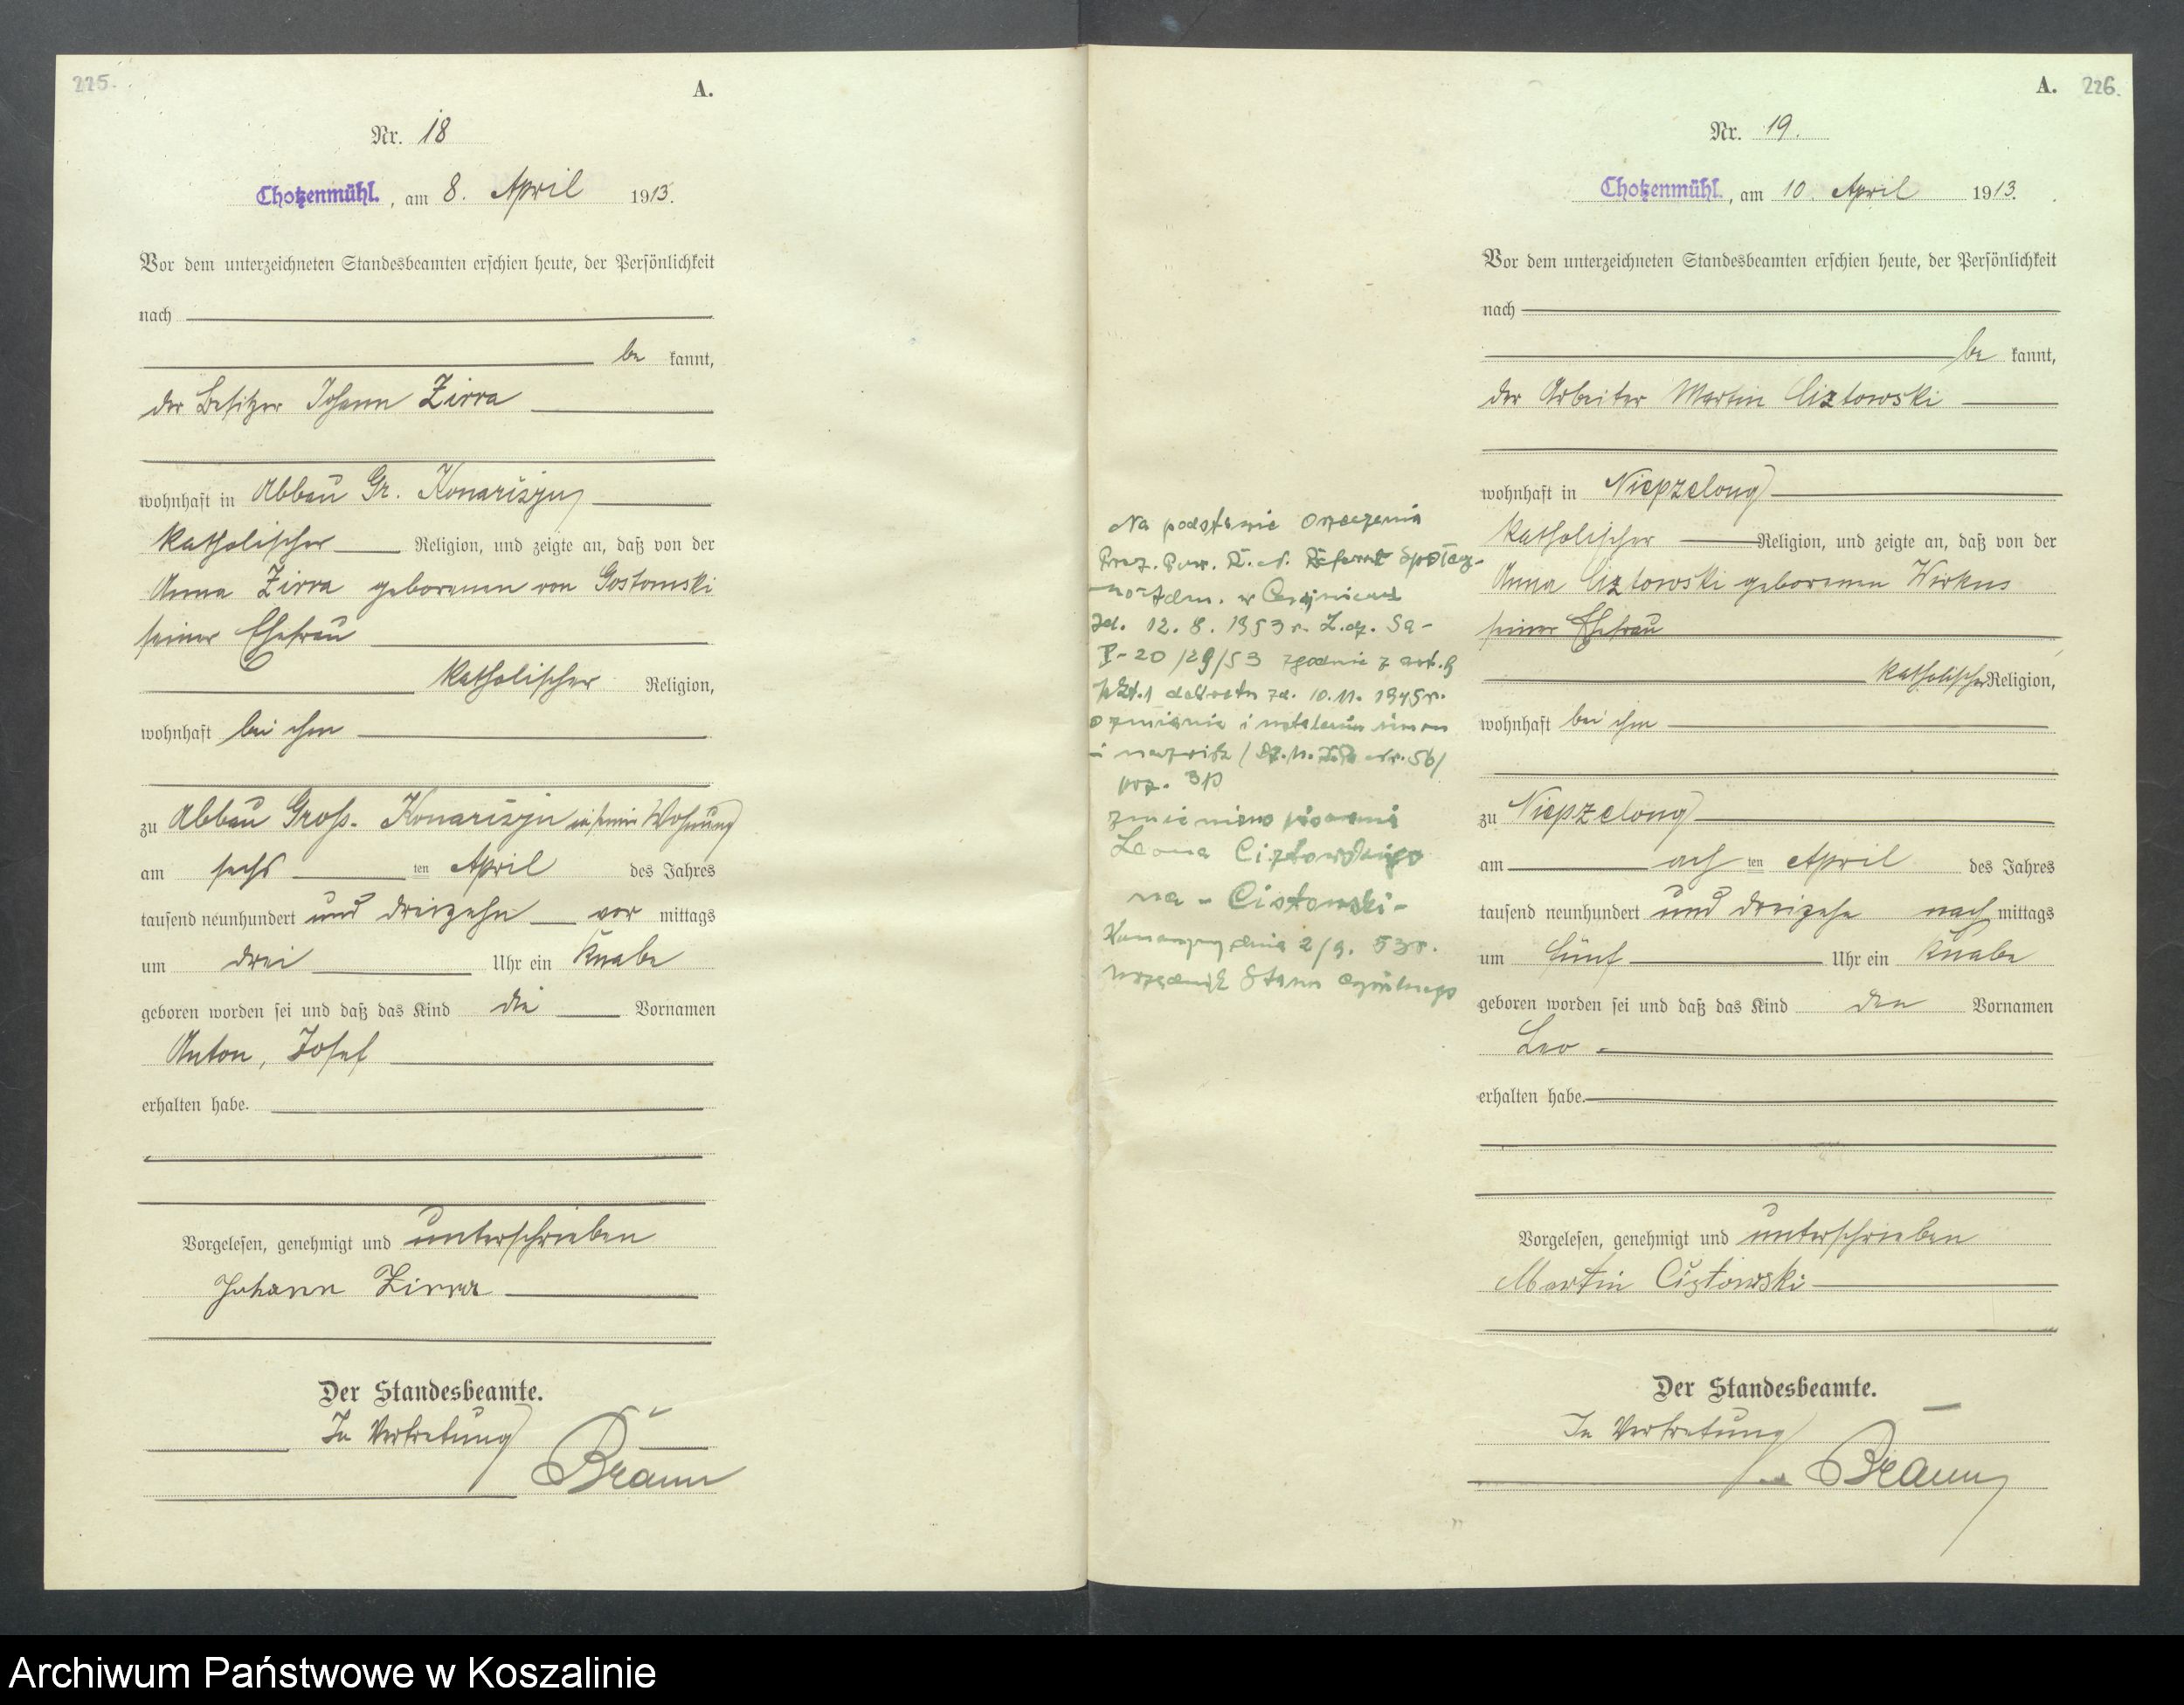 225.
A.
Nr. 18
Chotzenmühl., am 8. April 1913.
Vor dem unterzeichneten Standesbeamten erschien heute, der Persönlichkeit
nach
be kannt,
der Besitzer Johann Zirra
wohnhaft in Abbau Gr. Konarszyn
katholischer Religion, und zeigte an, daß von der
Anna Zirra geborenen von Gostomski
seiner Ehefrau
katholischer Religion,
wohnhaft bei ihm
zu Abbau Gross. Konarszyn in seiner Wohnung
am sechs ten April des Jahres
tausend neunhundert und dreizehn vor mittags
um drei Uhr ein Knabe
geboren worden sei und daß das Kind die Vornamen
Anton, Josef
erhalten habe.
Vorgelesen, genehmigt und unterschrieben
Johann Zirra
Der Standesbeamte.
In Vertretung
Braun
A. 226.
Nr. 19.
Chotzenmühl., am 10. April 1913.
Vor dem unterzeichneten Standesbeamten erschien heute, der Persönlichkeit
nach
be kannt,
der Arbeiter Martin Ciztowski
wohnhaft in Niepzelong
katholischer Religion, und zeigte an, daß von der
Anna Ciztowski geborenen Wirkus
seiner Ehefrau
katholischer Religion,
wohnhaft bei ihm
zu Niepzelong
am ach ten April des Jahres
tausend neunhundert und dreizehn nach mittags
um fünf Uhr ein Knabe
geboren worden sei und daß das Kind den Vornamen
Leo
erhalten habe.
Vorgelesen, genehmigt und unterschrieben
Martin Ciztowski
Der Standesbeamte.
In Vertretung
Braun
Na podstawie orzeczenia
Prez. Pow. R. N. Referat Społecz-
no-Adm. w
zd. 12. 8. 1953 r. L.dz. Sa-
V-20/29/53 zgodnie z art.
pkt.1 dekretu zd. 10.11. 1945 r.
o zmianie i ustalaniu imion
i nazwisk / Dz. U. R.P. Nr. 56/
poz. 310
zmieniono pisownię
Leona Ciztowskiego
na - Cistowski -
Konarzyny dnia 2/9. 53 r.
Urzędnik Stanu Cywilnego
Archiwum Państwowe w Koszalinie